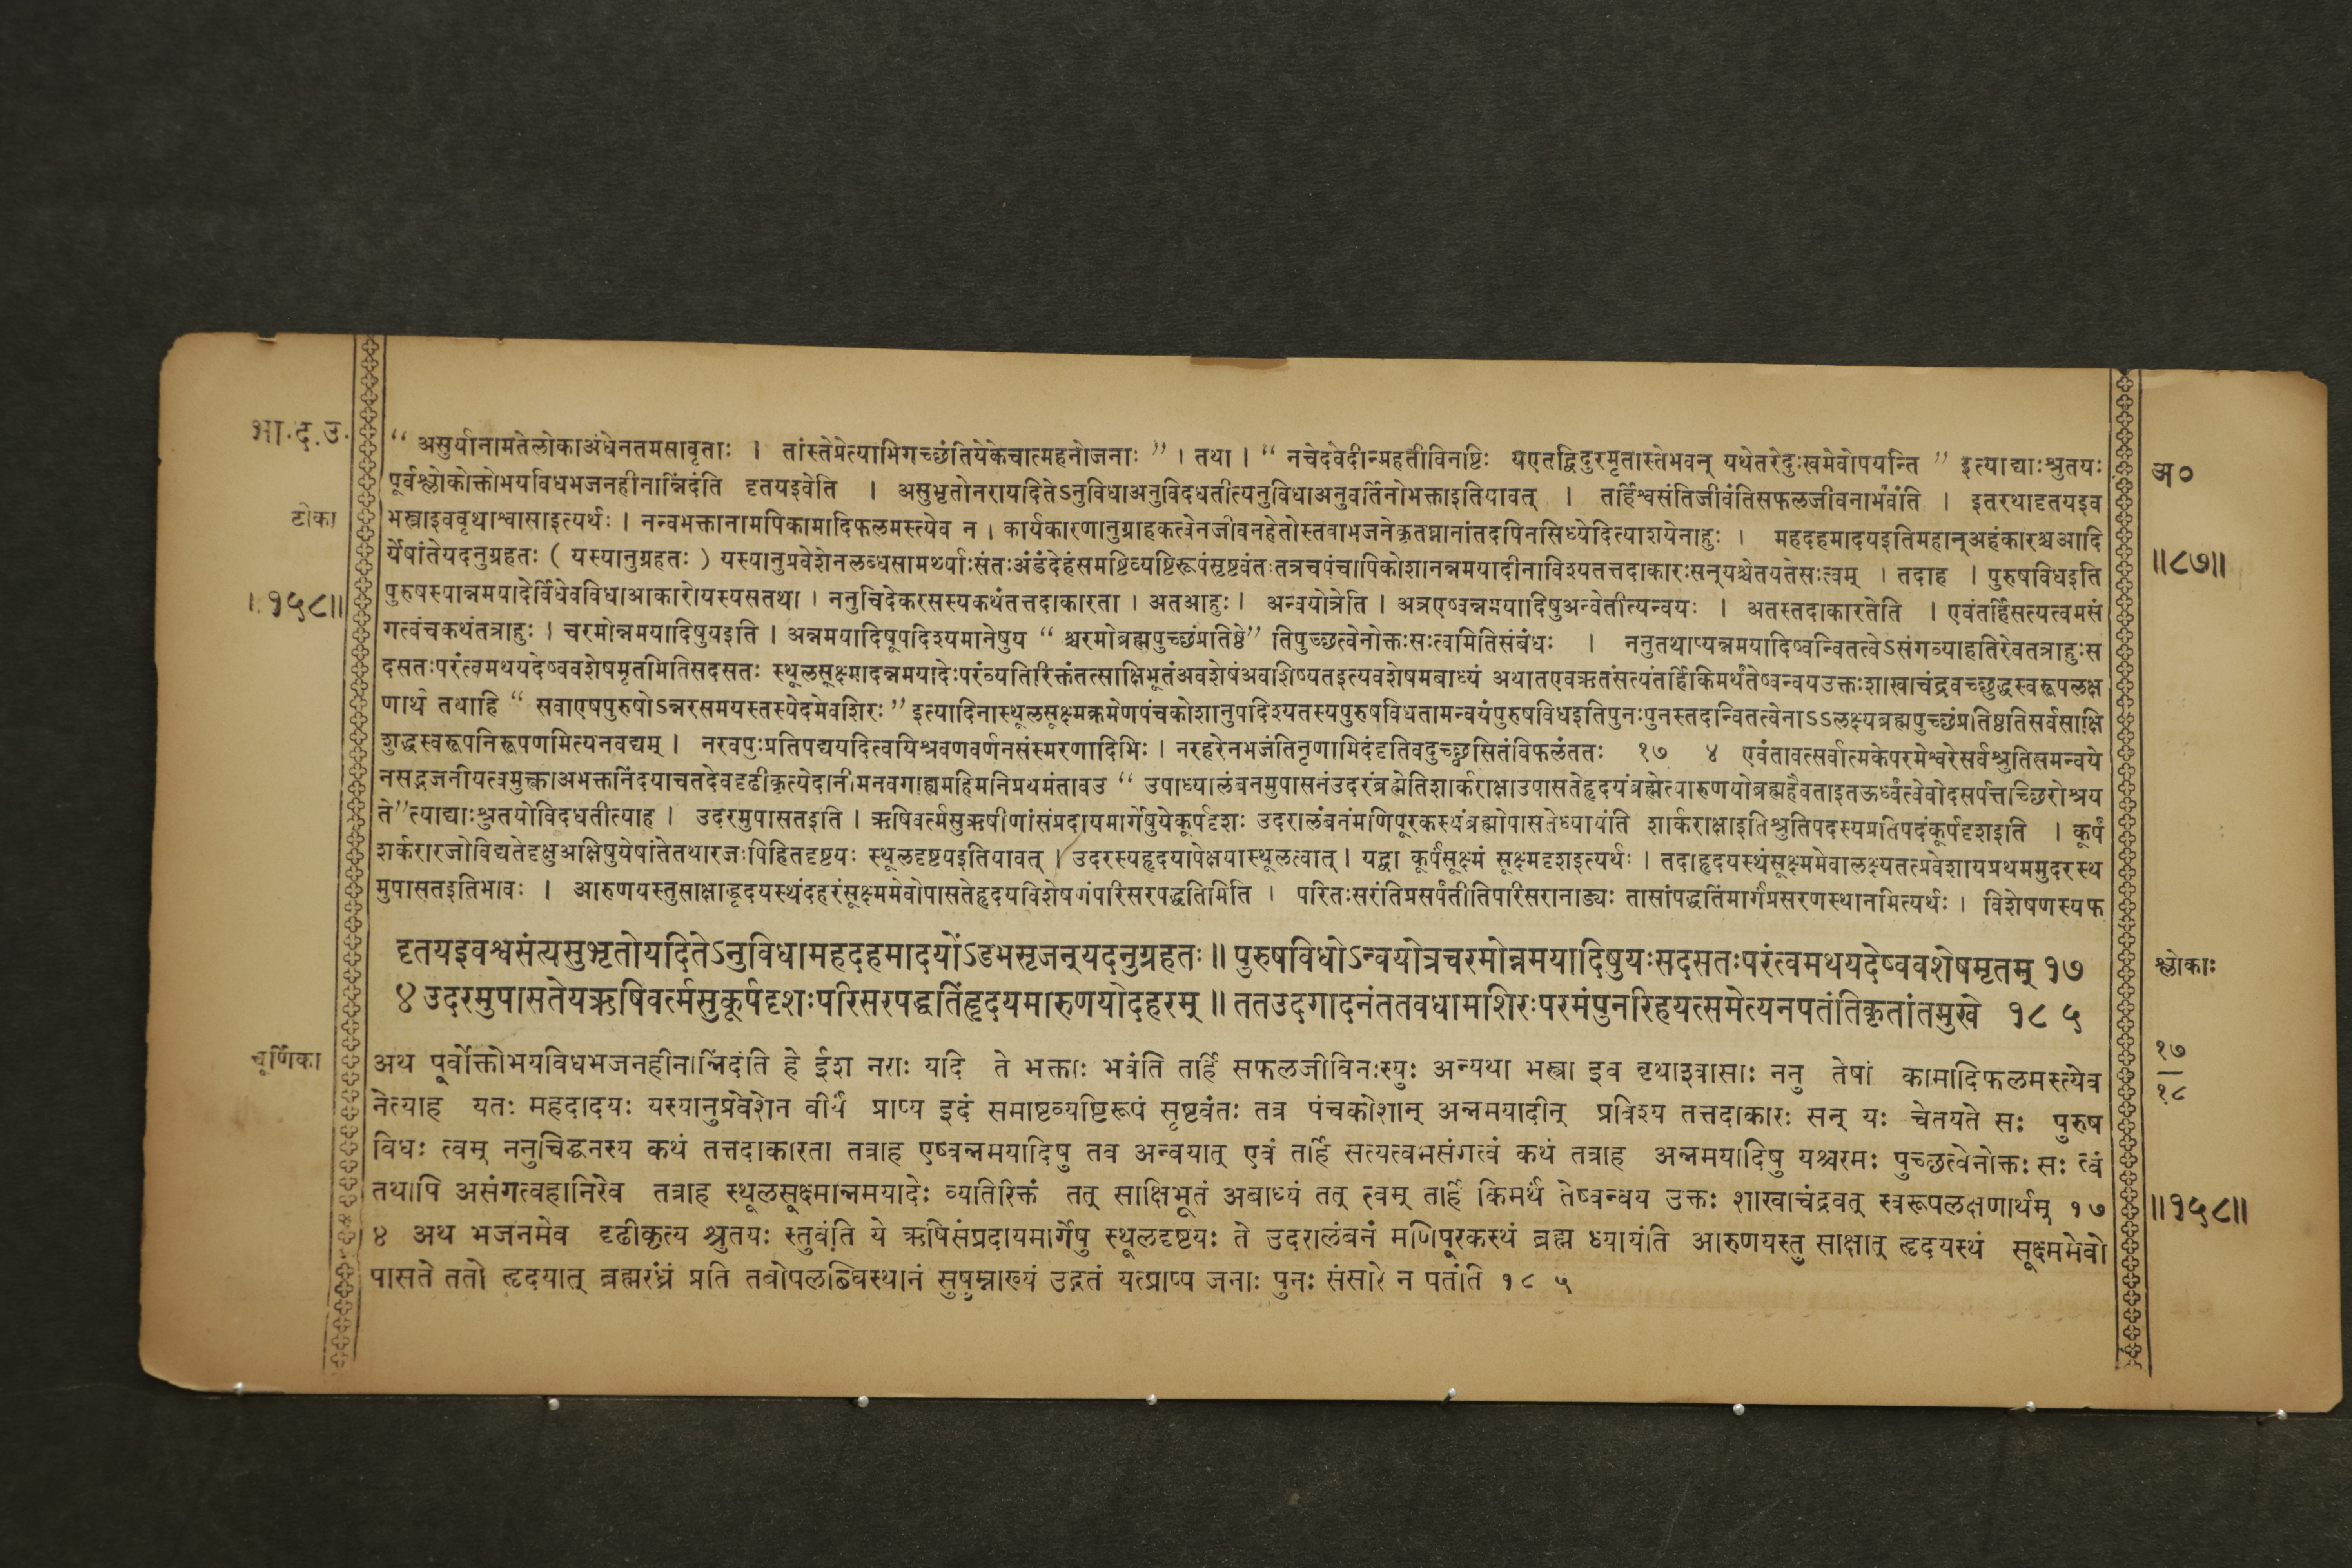 भा.द.उ.
टीका
।।१५८॥
चूर्णिका
“ असुर्यानामतेलोकाअंधेनतमसावृताः । तांस्तेप्रेत्याभिगच्छंतियेकेचात्महनोजनाः ” । तथा । “ नचेदवेदीन्महतीविनष्टिः यएतद्विदुरमृतास्तेभवन् यथेतरेदुःखमेवोपयन्ति ” इत्याद्याःश्रुतयः
पूर्वश्लोकोक्तोभयविधभजनहीनान्निंदंति दृतयइवेति । असुभृतोनरायदितेऽनुविधाअनुविदधतीत्यनुविधाअनुवर्तिनोभक्ताइतियावत् । तर्हिश्वसंतिजीवंतिसफलजीवनाभवंति । इतरथादृतयइव
भस्त्राइववृथाश्वासाइत्यर्थः । नन्वभक्तानामपिकामादिफलमस्त्येव न । कार्यकारणानुग्राहकत्वेनजीवनहेतोस्तवाभजनेकृतघ्नानांतदपिनसिध्येदित्याशयेनाहुः । महदहमादयइतिमहान्अहंकारश्चआदि
र्येषांतेयदनुग्रहतः ( यस्यानुग्रहतः ) यस्यानुप्रवेशेनलब्धसामर्थ्याःसंतःअंडंदेहंसमष्टिव्यष्टिरूपंसृष्टवंतःतत्रचपंचापिकोशानन्नमयादीनाविश्यतत्तदाकारःसन्यश्चेतयतेसःत्वम् । तदाह । पुरुषविधइति
पुरुषस्यान्नमयादेर्विधेवविधाआकारोयस्यसतथा । ननुचिदेकरसस्यकथंतत्तदाकारता । अतआहुः । अन्वयोत्रेति । अत्रएष्वन्नमयादिषुअन्वेतीत्यन्वयः । अतस्तदाकारतेति । एवंतर्हिसत्यत्वमसं
गत्वंचकथंतत्राहुः । चरमोन्नमयादिषुयइति । अन्नमयादिषूपदिश्यमानेषुय “ श्चरमोब्रह्मपुच्छंप्रतिष्ठे” तिपुच्छत्वेनोक्तःसःत्वमितिसंबंधः । ननुतथाप्यन्नमयादिष्वन्वितत्वेऽसंगत्वाहतिरेवतत्राहुःस
दसतःपरंत्वमथयदेष्ववशेषमृतमितिसदसतः स्थूलसूक्ष्मादन्नमयादेःपरंव्यतिरिक्तंतत्साक्षिभूतंअवशेषंअवशिष्यतइत्यवशेषमबाध्यं अथातएवऋतंसत्यंतर्हिकिमर्थंतेष्वन्वयउक्तःशाखाचंद्रवच्छुद्धस्वरूपलक्ष
णार्थं तथाहि “ सवाएषपुरुषोऽन्नरसमयस्तस्येदमेवशिरः ” इत्यादिनास्थूलसूक्ष्मक्रमेणपंचकोशानुपदिश्यतस्यपुरुषविधतामन्वयंपुरुषविधइतिपुनःपुनस्तदन्वितत्वेनाऽऽलक्ष्यब्रह्मपुच्छंप्रतिष्ठतिसर्वसाक्षि
शुद्धस्वरूपनिरूपणमित्यनवद्यम् । नरवपुःप्रतिपद्ययदित्वयिश्रवणवर्णनसंस्मरणादिभिः । नरहरेनभजंतिनृणामिदंदृतिवदुच्छ्वसितंविफलंततः १७ ४ एवंतावत्सर्वात्मकेपरमेश्वरेसर्वश्रुतिसमन्वये
नसद्भजनीयत्वमुक्त्वाअभक्तनिंदयाचतदेवदृढीकृत्येदानीमनवगाह्यमहिमनिप्रथमंतावउ “ उपाध्यालंबनमुपासनंउदरंब्रह्मेतिशार्कराक्षाउपासतेहृदयंब्रह्मेत्यारुणयोब्रह्महैवताइतऊर्ध्वंत्वेवोदसर्पत्तच्छिरोश्रय
ते”त्याद्याःश्रुतयोविदधतीत्याह । उदरमुपासतइति । ऋषिवर्त्मसुऋषीणांसंप्रदायमार्गेषुयेकूर्पदृशः उदरालंबनंमणिपूरकस्थंब्रह्मोपासतेध्यायंति शार्कराक्षाइतिश्रुतिपदस्यप्रतिपदंकूर्पदृशइति । कूर्पं
शर्करारजोविद्यतेदृक्षुअक्षिषुयेषांतेतथारजःपिहितदृष्टयः स्थूलदृष्टयइतियावत् । उदरस्यहृदयापेक्षयास्थूलत्वात् । यद्वा कूर्पंसूक्ष्मं सूक्ष्मदृशइत्यर्थः । तदाहृदयस्थंसूक्ष्ममेवालक्ष्यतत्प्रवेशायप्रथममुदरस्थ
मुपासतइतिभावः । आरुणयस्तुसाक्षाद्धृदयस्थंदहरंसूक्ष्ममेवोपासतेहृदयविशेषणंपरिसरपद्धतिमिति । परितःसरंतिप्रसर्पंतीतिपरिसरानाड्यः तासांपद्धतिंमार्गंप्रसरणस्थानमित्यर्थः । विशेषणस्यफ
दृतयइवश्वसंत्यसुभृतोयदितेऽनुविधामहदहमादयोंऽडमसृजन्यदनुग्रहतः ॥ पुरुषविधोऽन्वयोत्रचरमोन्नमयादिषुयःसदसतःपरंत्वमथयदेष्ववशेषमृतम् १७
४ उदरमुपासतेयऋषिवर्त्मसुकूर्पदृशःपरिसरपद्धतिंहृदयमारुणयोदहरम् ॥ ततउदगादनंततवधामशिरःपरमंपुनरिहयत्समेत्यनपतंतिकृतांतमुखे १८ ५
अथ पूर्वोक्तोभयविधभजनहीनान्निंदंति हे ईश नराः यदि ते भक्ताः भवंति तर्हि सफलजीविनःस्युः अन्यथा भस्त्रा इव वृथाश्वासाः ननु तेषां कामादिफलमस्त्येव
नेत्याह यतः महदादयः यस्यानुप्रवेशेन वीर्यं प्राप्य इदं समष्टिव्यष्टिरूपं सृष्टवंतः तत्र पंचकोशान् अन्नमयादीन् प्रविश्य तत्तदाकारः सन् यः चेतयते सः पुरुष
विधः त्वम् ननुचिद्घनस्य कथं तत्तदाकारता तत्राह एष्वन्नमयादिषु तव अन्वयात् एवं तर्हि सत्यत्वमसंगत्वं कथं तत्राह अन्नमयादिषु यश्चरमः पुच्छत्वेनोक्तः सः त्वं
तथापि असंगत्वहानिरेव तत्राह स्थूलसूक्ष्मान्नमयादेः व्यतिरिक्तं तत् साक्षिभूतं अबाध्यं तत् त्वम् तर्हि किमर्थं तेष्वन्वय उक्तः शाखाचंद्रवत् स्वरूपलक्षणार्थम् १७
४ अथ भजनमेव दृढीकृत्य श्रुतयः स्तुवंति ये ऋषिसंप्रदायमार्गेषु स्थूलदृष्टयः ते उदरालंबनं मणिपूरकस्थं ब्रह्म ध्यायंति आरुणयस्तु साक्षात् हृदयस्थं सूक्ष्ममेवो
पासते ततो हृदयात् ब्रह्मरंध्रं प्रति तवोपलब्धिस्थानं सुषुम्नाख्यं उद्गतं यत्प्राप्य जनाः पुनः संसारे न पतंति १८ ५
अ०
॥८७॥
श्लोकाः
१७
१८
॥१५८॥